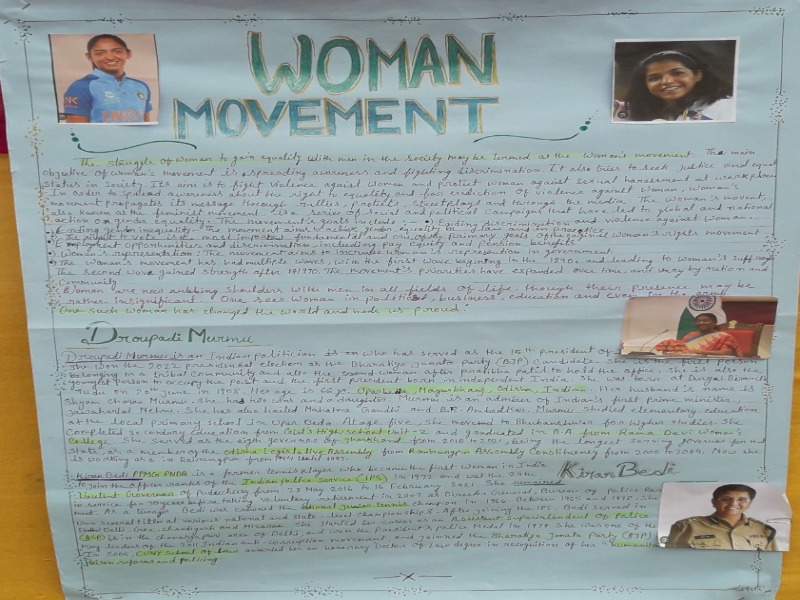 WOMAN
MOVEMENT
The struggle of woman to gain equality with men in the society may be termed as the Woman's movement. The main
objective of woman's movement is spreading awareness and fighting discrimination. It also tries to seek justice and equal
status in society. Its aim is to fight violence against woman and protect woman against sexual harassment at workplace
In order to spread awareness about the right to equality and for eradication of violence against woman, woman's
movement propagates its message through rallies, protests, streetplays and through the media. The woman's movement,
also known as the feminist movement, is a series of social and political campaigns that have led to global and national
action on gender equality. The movement's goals include: Ending discrimination and violence against woman.
Ending gender inequality: The movement aims to achieve gender equality in law and in practice
The right to vote: the most important fundamental and one of the primary goals of the woman's rights movement
Employment opportunities and discrimination, including pay equity and pension benefits.
Woman's representation: The movement aims to increase woman's representation in government
The woman's movement has had multiple waves, with the first wave beginning in the 1840s and leading to woman's suffrage
The second wave gained strength after 1970. The movement's priorities have expanded over time, and vary by nation and
Community
Woman are now rubbing shoulders with men in all fields of life though their presence may be
rather insignificant. One sees woman in political, business, education and even in the
One such woman has changed the world and made us proud:
Droupadi Murmu
Droupadi Murmu is an Indian politician who has served as the 15th president of
She won the 2022 presidential election as the Bharatiya Janata party (BJP) candidate. She is the first person
belonging to a tribal community and also the second woman after pratibha patil to hold the office. She is also the
youngest person to occupy the post and the first president born in independent India. She was born
Tudu on 20th June in 1958. Her age is 66 yr. Uparbeda, Mayurbhanj, Odisha, India. Her husband's name is
Shyam Charan Murmu. She had two sons and a daughter. Murmu is an admirer of India's first prime minister,
Jawaharlal Nehru. She has also hailed Mahatma Gandhi and B.R. Ambedkar. Murmu studied elementary education
at the local primary school in Upar Beda. At age five, she moved to Bhubaneswar for higher studies. She
completed secondary education from Girl's High school unit-2 and graduated in B.A from Rama Devi Woman's
College. She served as the eighth governor of Jharkhand from 2015 to 2021, being the longest serving governor for
state, as a member of the odisha Legislative Assembly from Rairangpur Assembly Constituency from 2000 to 2009. Now she
is working as in Rairangpur from 1994 until 1997.
Kiran Bedi
Kiran Bedi is a former tennis player who became the first Woman in India
to join the officer ranks of the Indian Police Service (IPS) in 1972 and was the 24th
Lieutent Governor of Puducherry from 28 May 2016 to 16 February 2021. She remained
in service for 35 years before taking voluntary retirement in 2007 as Director General, Bureau of Police
As a teenage Bedi was crowned the national junior tennis champion in 1966. Between 1965 and 1978, she
was several titles at various national and state-level championships. After joining the IPS, Bedi served in
Delhi, Goa, Chandigarh and Mizoram. She started her career as an Assistant Superintendent of Police
(ASP) in the chanakyapuri area of Delhi, and won the President's Police Medal in 1979. She was one of the
key leaders of the 2011 Indian anti-corruption movement, and joined the Bharatiya Janata Party (BJP)
In 2005, CUNY School of Law awarded her an honorary Doctor of Law degree in recognition of her "humanitarian
prison reforms and policing